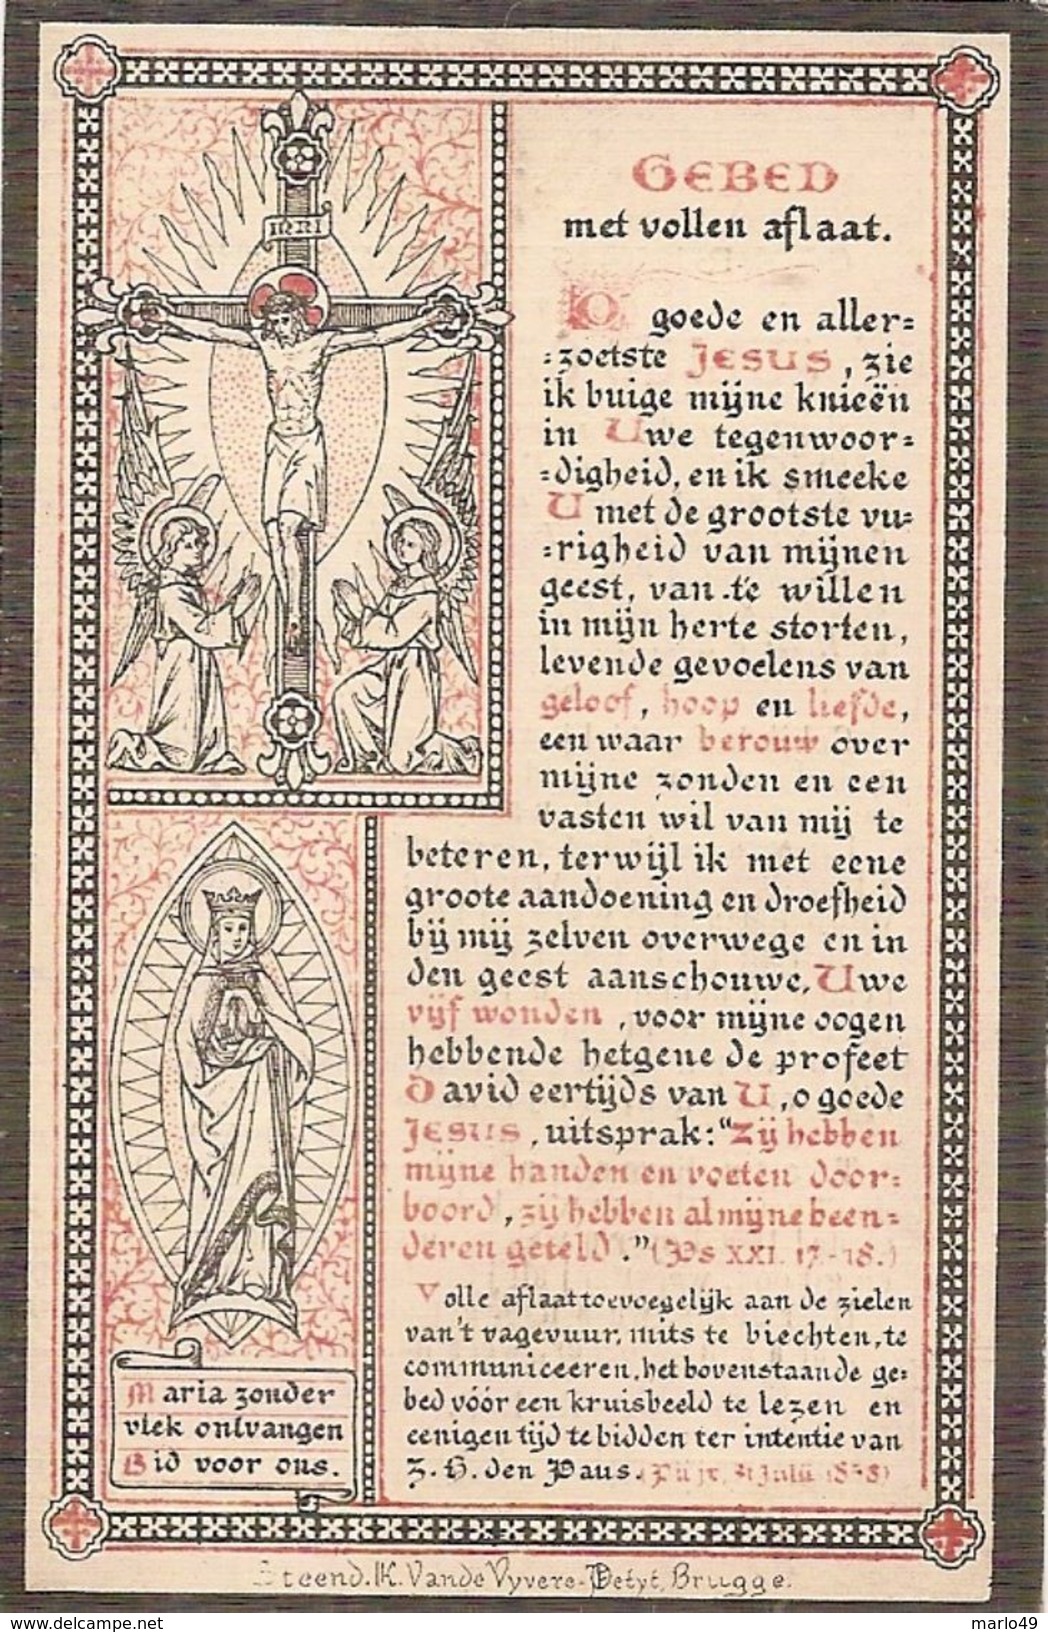 INRI
GEBED
met vollen aflaat.
O goede en aller=
=zoetste JESUS, zie
ik buige mijne knieën
in Uwe tegenwoor=
=digheid, en ik smeeke
U met de grootste vu=
=righeid van mijnen
geest, van te willen
in mijn herte storten,
levende gevoelens van
geloof, hoop en liefde,
een waar berouw over
mijne zonden en een
vasten wil van mij te
beteren, terwijl ik met eene
groote aandoening en droefheid
bij mij zelven overwege en in
den geest aanschouwe, Uwe
vijf wonden, voor mijne oogen
hebbende hetgene de profeet
David eertijds van U, o goede
JESUS, uitsprak: "Zij hebben
mijne handen en voeten door=
boord, zij hebben al mijne been=
deren geteld." (Ps XXI. 17-18.)
Volle aflaat toevoegelijk aan de zielen
van 't vagevuur, mits te biechten, te
communiceeren, het bovenstaande ge=
bed vóór een kruisbeeld te lezen en
eenigen tijd te bidden ter intentie van
Z. H. den Paus. (Pii IX, 31 Julii 1858)
Maria zonder
vlek ontvangen
Bid voor ons.
Steend. K. Van de Vyvere-Petyt, Brugge.
http://www.delcampe.net
marlo49